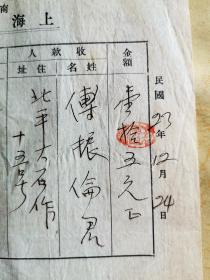 南
上海
民國23年12月24日
金額
壹拾五元正
收款人
姓名
傅振倫君
住址
北平大石作
十五号